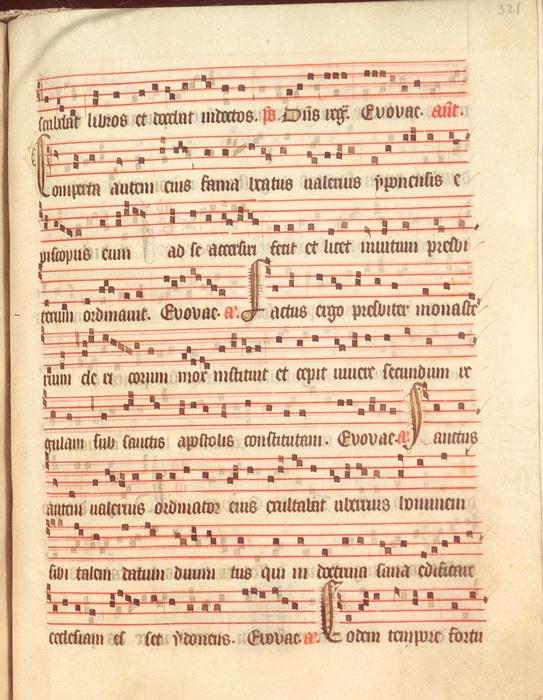 321
libros et docebat indoctos. ps. Dns reg. Evovae. ant.
Comperta autem eius fama beatus valerius yponensis e
piscopus eum ad se accersiri fecit et licet invitum presbi
terum ordinavit. Evovae. a. Factus ergo presbiter monaste
rium cle ri corum mox instituit et cepit vivere secundum re
gulam sub sanctis apostolis constitutam. Evovae. a. Sanctus
autem valerius ordinator eius exultabat uberius hominem
sibi talem datum divini tus qui in doctrina sana edificare
ecclesiam es set ydoneus. Evovae. a. Eodem tempore fortu